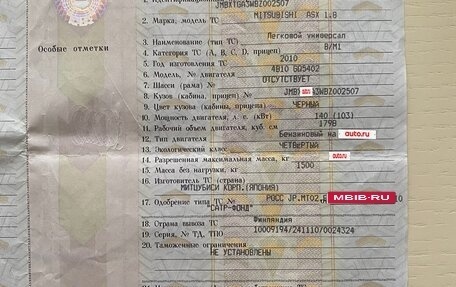 1. Идентификационный JMBXTGA3WBZ002507
2. Марка, модель ТС MITSUBISHI ASX 1.8
Особые отметки
3. Наименование (тип ТС) Легковой универсал
4. Категория ТС (A, B, C, D, прицеп) B/M1
5. Год изготовления ТС 2010
6. Модель, № двигателя 4B10 GD5402
7. Шасси (рама) № ОТСУТСТВУЕТ
8. Кузов (кабина, прицеп) № JMB auto.ru 3WBZ002507
9. Цвет кузова (кабины, прицепа) ЧЕРНЫЙ
10. Мощность двигателя, л. с. (кВт) 140 (103)
11. Рабочий объем двигателя, куб. см 1798
12. Тип двигателя Бензиновый на auto.ru
13. Экологический класс ЧЕТВЕРТЫЙ
14. Разрешенная максимальная масса, кг auto.ru
15. Масса без нагрузки, кг 1500
16. Изготовитель ТС (страна)
МИТЦУБИСИ КОРП.(ЯПОНИЯ)
17. Одобрение типа ТС № РОСС JP.MT02. MBIB-RU 10
"САТР-ФОНД"
18. Страна вывоза ТС Финляндия
19. Серия, № ТД, ТПО 10009194/241110/0024324
20. Таможенные ограничения
НЕ УСТАНОВЛЕНЫ